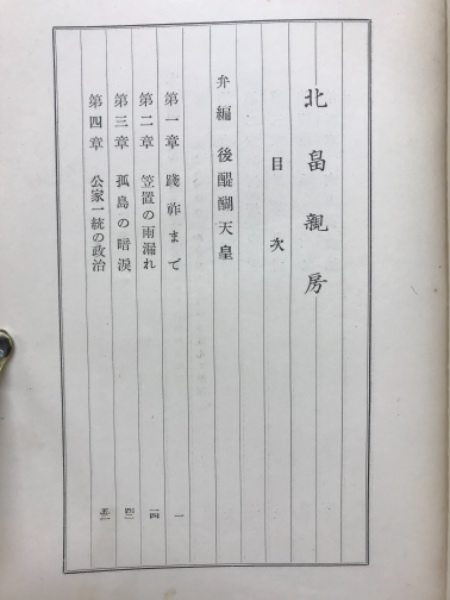 北畠親房
目次
弁編 後醍醐天皇
第一章 踐祚まで 一
第二章 笠置の雨漏れ 一四
第三章 孤島の暗涙
第四章 公家一統の政治